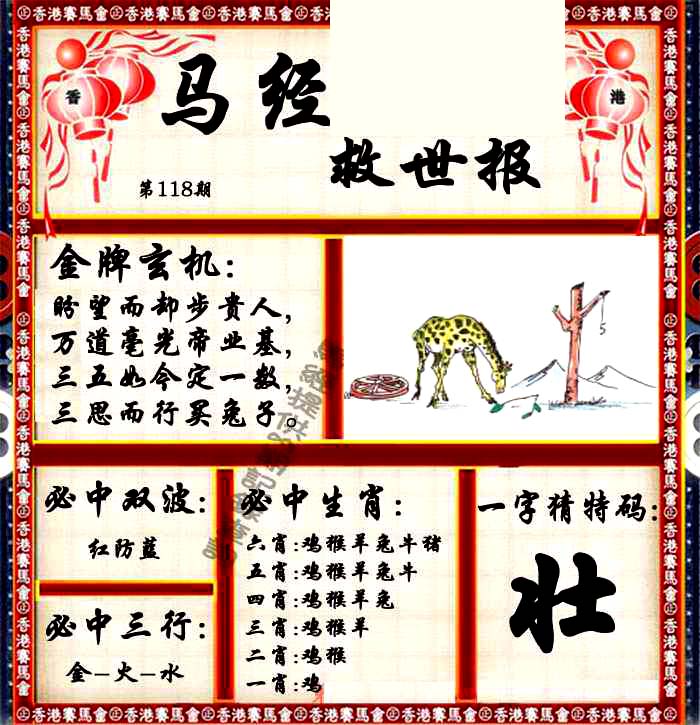 香港賽馬會
香
港
马经
救世报
第118期
金牌玄机:
盼望而却步贵人,
万道毫光帝业基,
三五如今定一数,
三思而行买兔子。
必中双波:
红防蓝
必中三行:
金-火-水
必中生肖:
六肖:鸡猴羊兔牛猪
五肖:鸡猴羊兔牛
四肖:鸡猴羊兔
三肖:鸡猴羊
二肖:鸡猴
一肖:鸡
一字猜特码:
壮